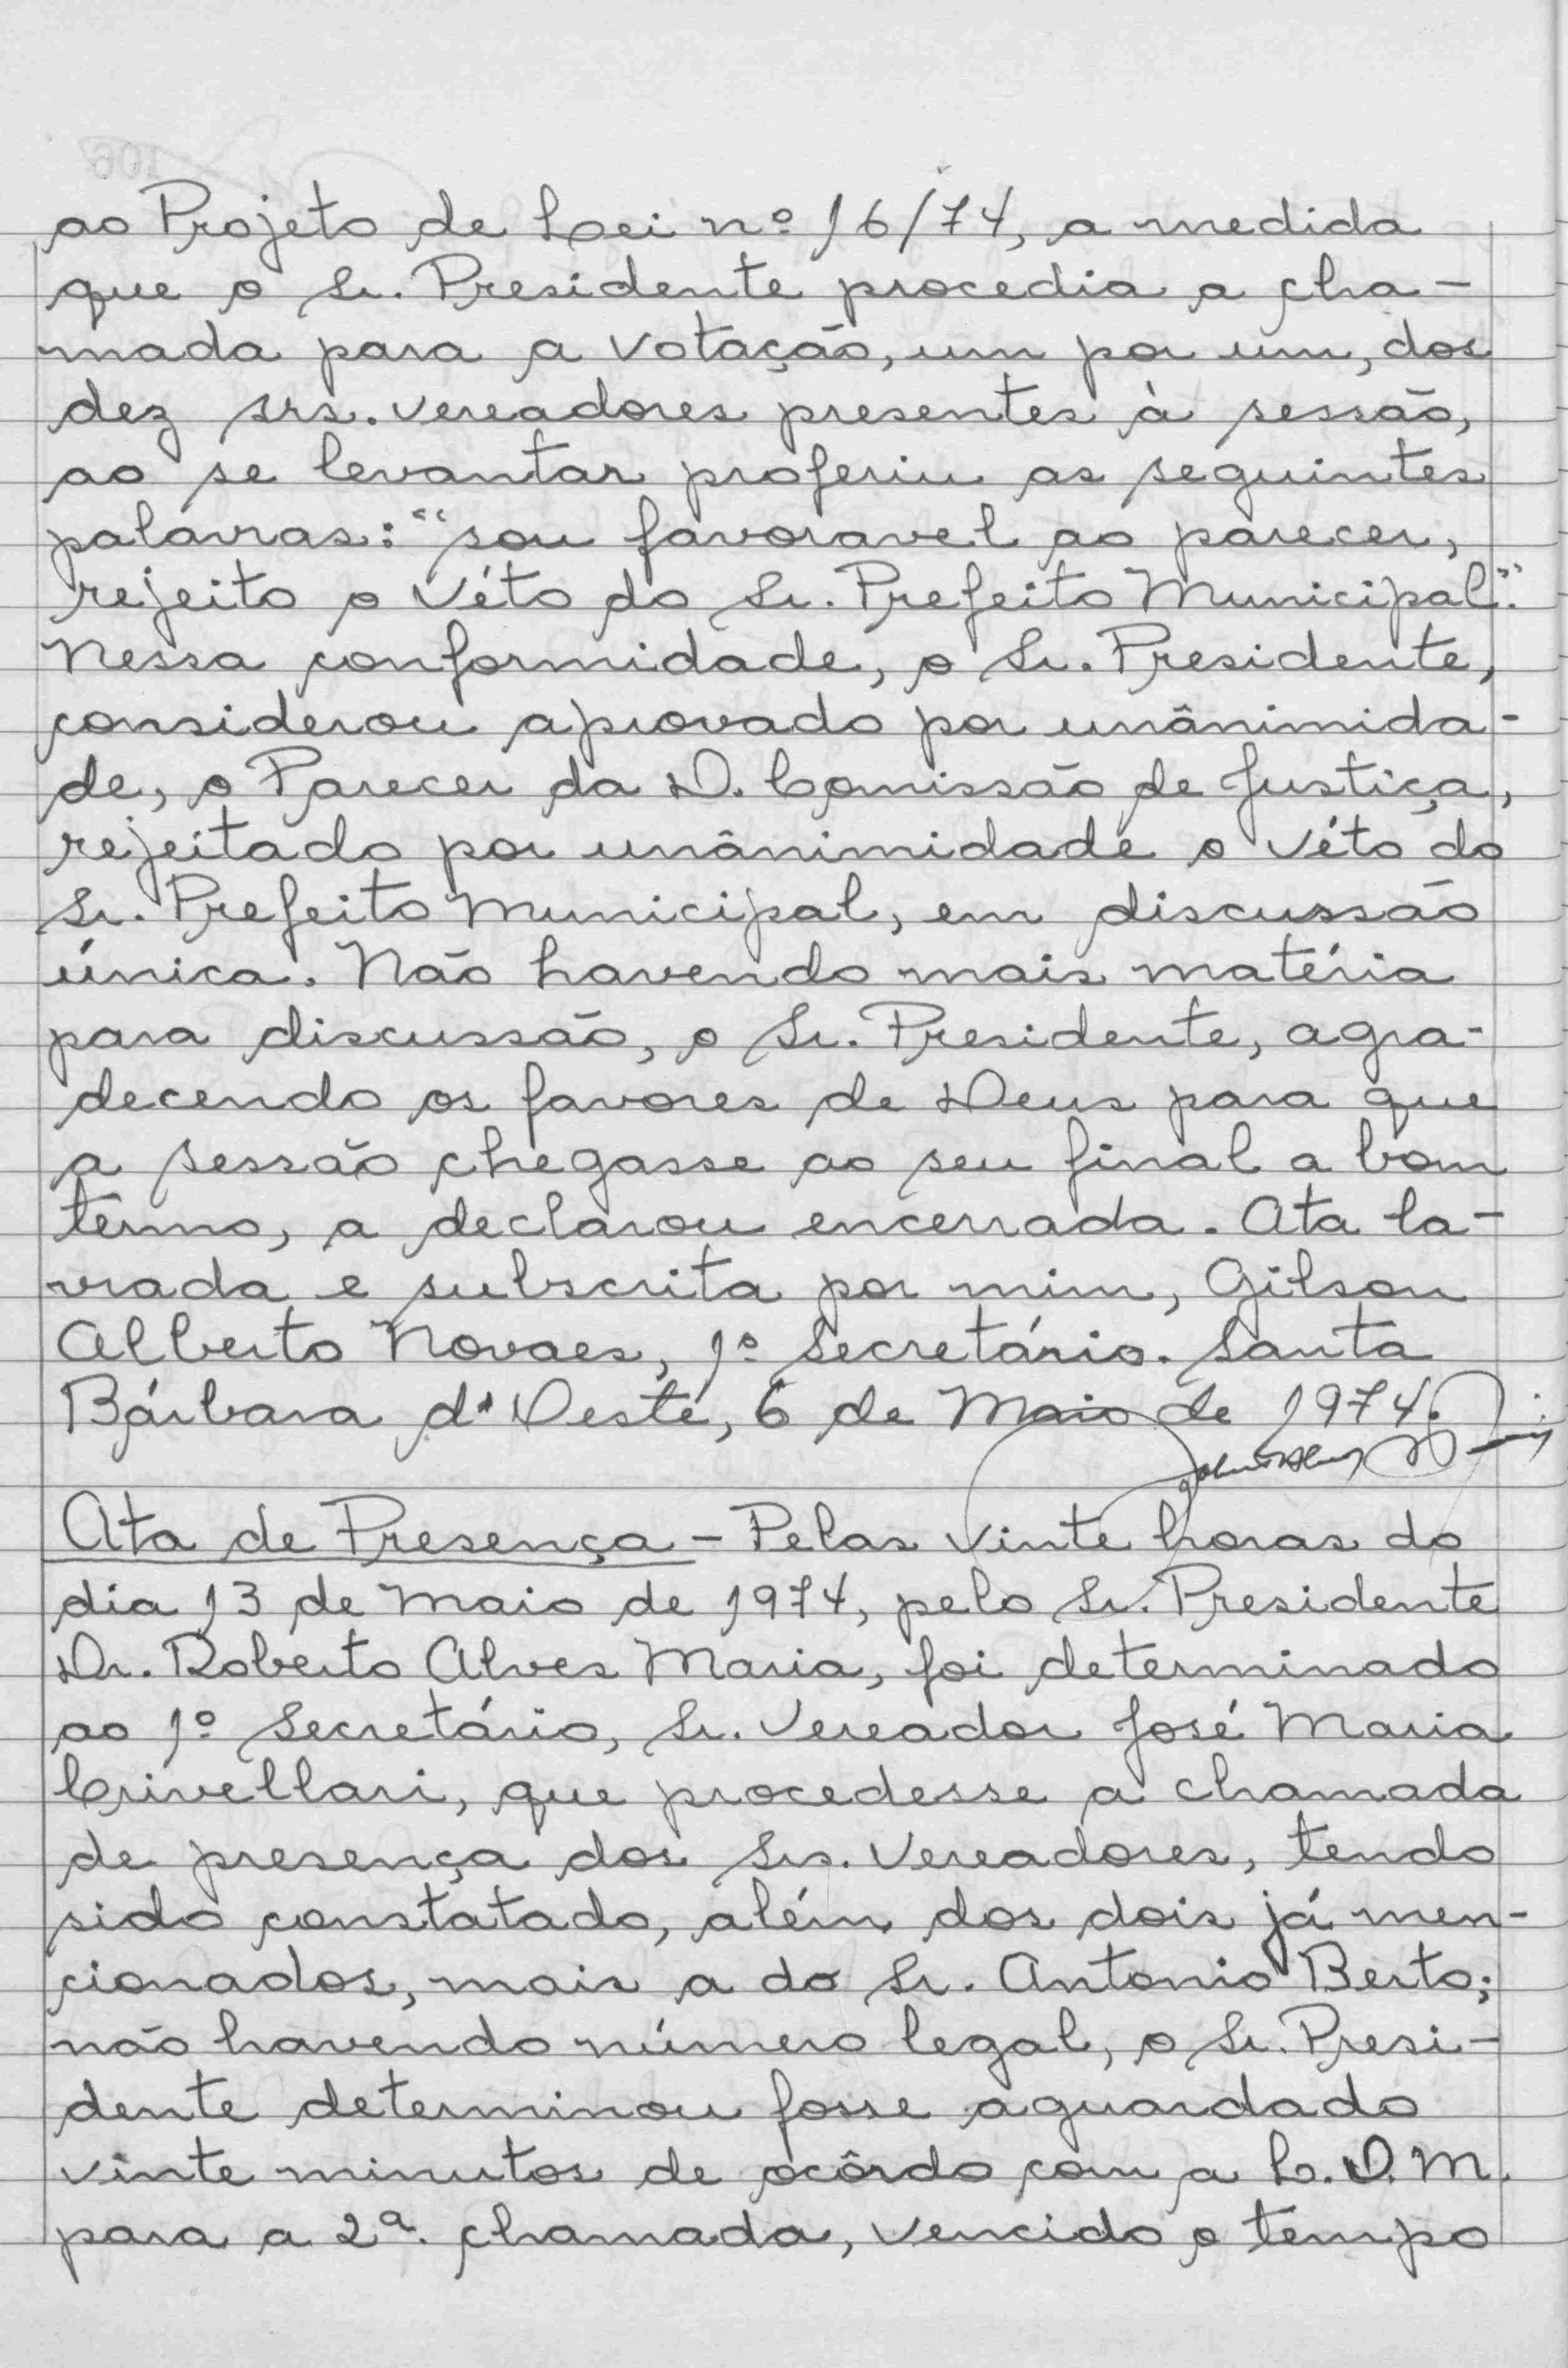 ao Projeto de Lei nº 16/74, a medida
que o Sr. Presidente procedia a cha-
mada para a votação, um por um, dos
dez srs. vereadores presentes à sessão,
ao se levantar proferiu as seguintes
palavras: "sou favoravel ao parecer,
rejeito o Véto do Sr. Prefeito Municipal".
Nessa conformidade, o Sr. Presidente,
considerou aprovado por unânimida-
de, o Parecer da D. Comissão de Justiça,
rejeitado por unânimidade o Véto do
Sr. Prefeito Municipal, em discussão
única. Não havendo mais matéria
para discussão, o Sr. Presidente, agra-
decendo os favores de Deus para que
a sessão chegasse ao seu final a bom
termo, a declarou encerrada. Ata la-
vrada e subscrita por mim, Gilson
Alberto Novaes, 1º Secretário. Santa
Bárbara d'Oeste, 6 de Maio de 1974.
Ata de Presença - Pelas vinte horas do
dia 13 de Maio de 1974, pelo Sr. Presidente
Dr. Roberto Alves Maria, foi determinado
ao 1º Secretário, Sr. Vereador José Maria
Crivellari, que procedesse a chamada
de presença dos Srs. Vereadores, tendo
sido constatado, além dos dois já men-
cionados, mais a do Sr. Antonio Berto;
não havendo número legal, o Sr. Presi-
dente determinou fosse aguardado
vinte minutos de acôrdo com a L.O.M.
para a 2ª. chamada, vencido o tempo